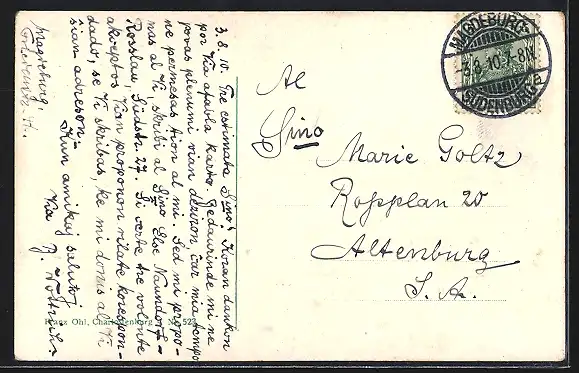 3.8.10. Tre estimata Sino! Koran dankon
por Via afabla karto. Bedaurinde mi ne
povas plenumi vian deziron, ĉar mia tempo
ne permesas tion al mi. Sed mi propo-
nas al Vi, skribi al Sino Else Naundorf-
Rosslau, Südstr. 27. Si certe tre volonte
akceptos Vian proponon rilate korespon-
dado, se Vi skribas, ke mi donis al Vi
ŝian adreson.-
Kun amikaj salutoj
Via
Magdeburg,
Al
Sino
Marie Goltz
Rossplan 20
Altenburg
S. A.
MAGDEBURG-
3.8.10.7-8N
SUDENBURG
a
Franz Ohl, Charlottenburg
523